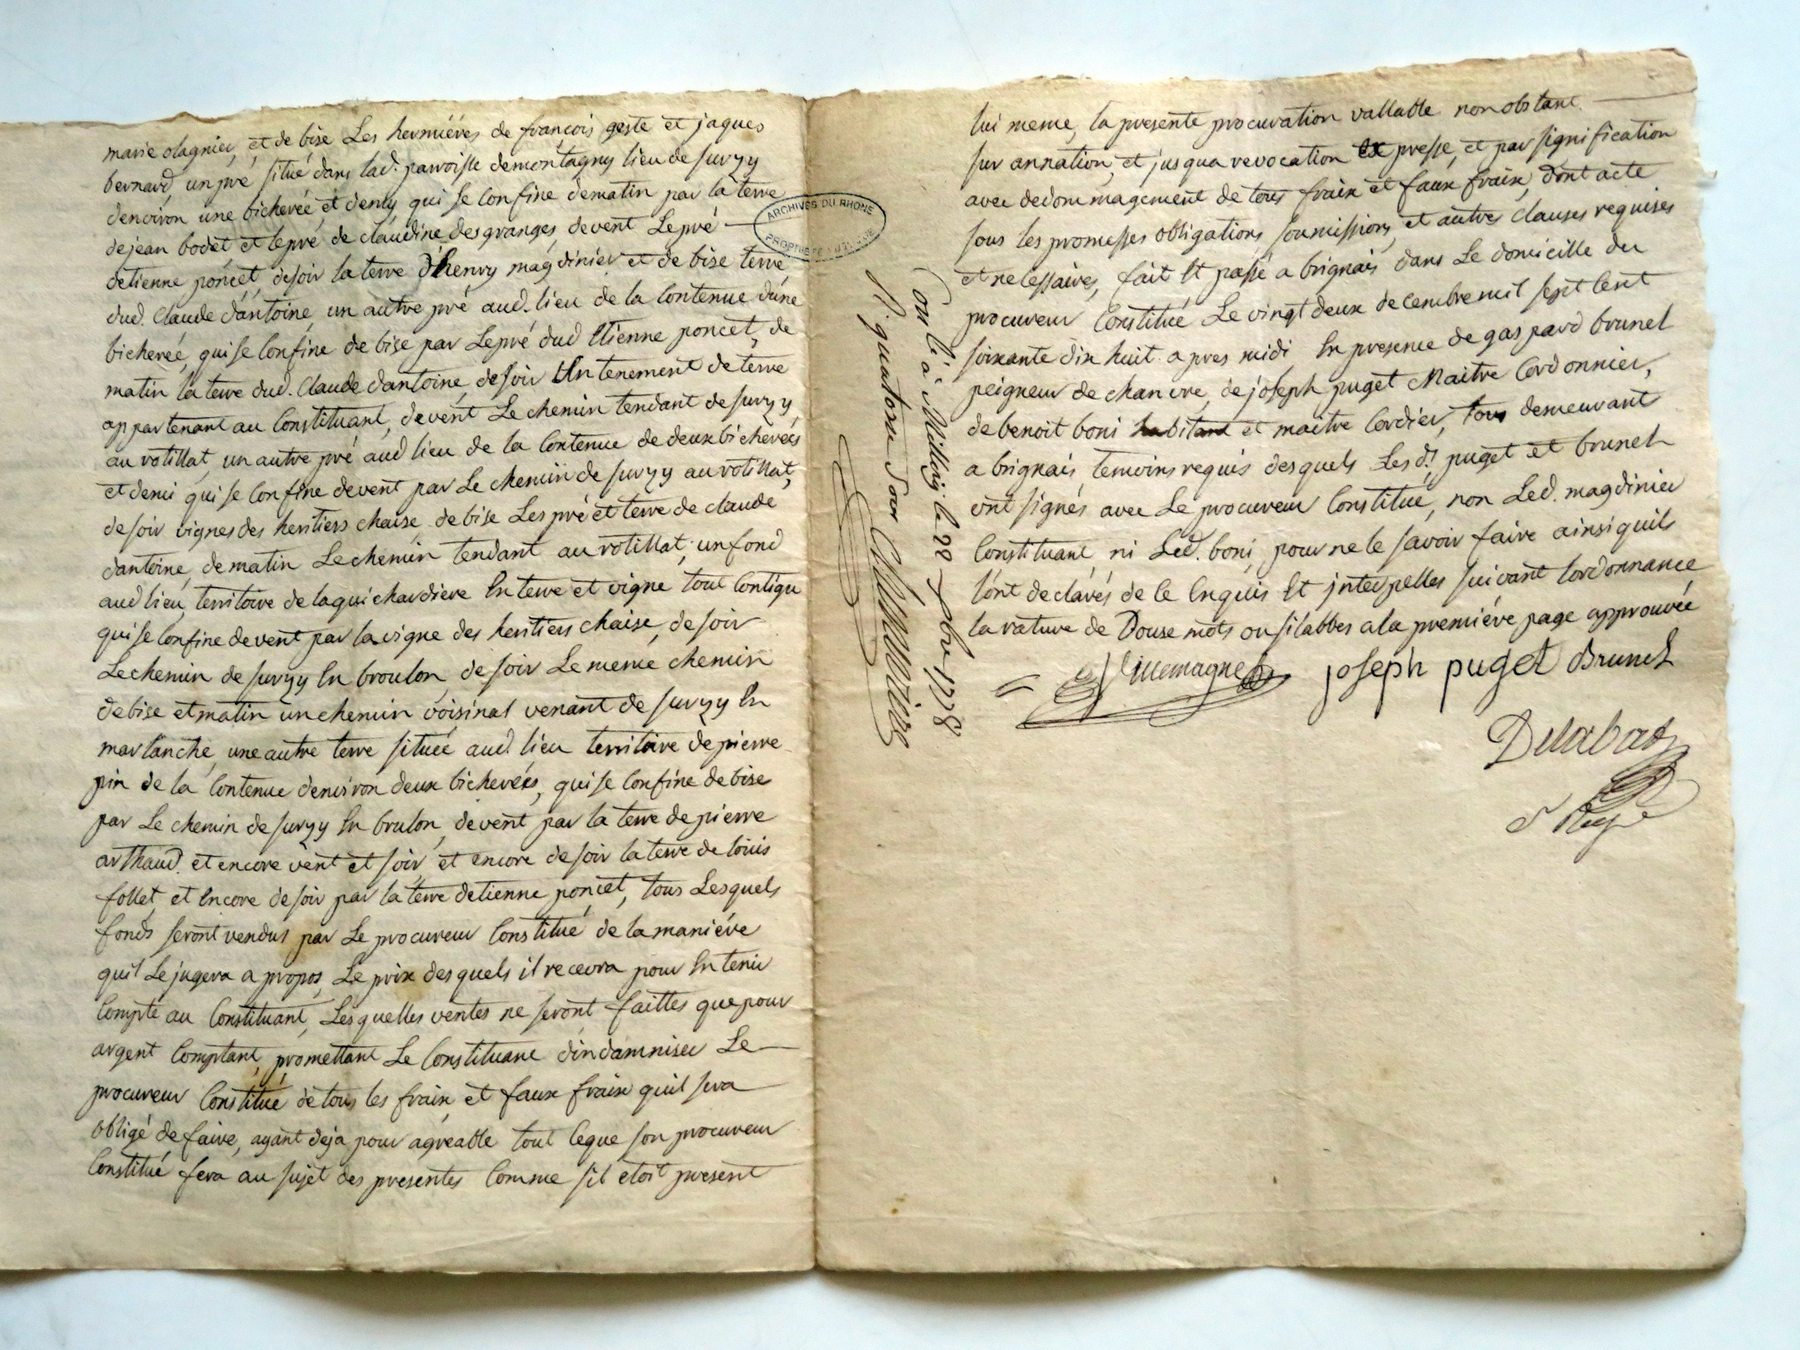 marie olagnier, et de bise Les hermiéres de françois geste et jaques
bernard, un pré situé dans lad. parroisse de montagny lieu de survy
denviron une bicherée et demy qui se confine de matin par la terre
de jean bodet et le pré de claudine desgranges devent Le pré
detienne poncet, de soir la terre d'henry magdinier et de bise terre
dud. Claude dantoine, un autre pré aud. lieu de la Contenue dúne
bicherée, qui se Confine de bise par Le pré dud Etienne poncet, de
matin la terre dud. Claude dantoine, de soir Un tenement de terre
appartenant au Constituant, devent Le chemin tendant de survy
au rotillat, un autre pré aud lieu de la Contenue de deux bicherées
et demi qui se Confine devent par Le chemin de survy au rotillat,
de soir vignes des heritiers chaise de bise Les pré et terre de claude
dantoine, de matin Le chemin tendant au rotillat, un fond
aud lieu, territoire de laguichardiere En terre et vigne tout Contigu
qui se Confine devent par la vigne des heritiers chaise, de soir
Le chemin de survy En broulon, de soir Le meme chemin
de bise et matin un chemin voisinal venant de survy En
marlanche, une autre terre située aud. lieu territoire de pierre
pin de la Contenue denviron deux bicherées, qui se Confine de bise
par Le chemin de survy En brulon, devent par la terre de pierre
arthaud. et encore vent et soir, et encore de soir la terre de louis
follet, et Encore de soir par la terre detienne poncet, tous Lesquels
fonds seront vendus par Le procureur Constitué de la maniére
quil Le jugera a propos, Le prix desquels il recevra pour En tenir
Compte au Constituant, Lesquelles ventes ne seront faittes que pour
argent Comptant, promettant Le Constituant dindamniser Le
procureur Constitué de tous les fraix et faux fraix quil sera
obligé de faire, ayant deja pour agréable tout Ceque son procureur
Constitué fera au sujet des presentes Comme sil etoit present
ARCHIVES DU RHONE
PROPRIETE PUBLIQUE
Conlé à Millery le 28 xbre 1778
R quatorze sous
lui meme, la presente procuration vallable nonobstant
sur annation, et jusqua revocation expresse, et par signification
avec dedommagement de tous fraix et faux fraix, dont acte
sous les promesses obligations soumissions et autres clauses requises
et necessaires, fait Et passé a brignais dans Le domicille du
procureur Constitué Le vingt deux decembre mil sept Cent
soixante dix huit apres midi En presence de gaspard brunet
peigneur de chanvre, de joseph puget Maitre Cordonnier,
de benoit boni habitant et maitre Cordier, tous demeurant
a brignais, temoins requis desquels Les d.t puget et brunet
ont signés avec Le procureur Constitué, non Led. magdinier
Constituant, ni Led. boni, pour ne le savoir faire ainsi quils
l'ont declarés de Ce Enquis Et interpelles suivant lordonnance
la rature de Douse mots ou silabbes a la premiére page approuvée
Villemagne joseph puget Brunet
Delabat